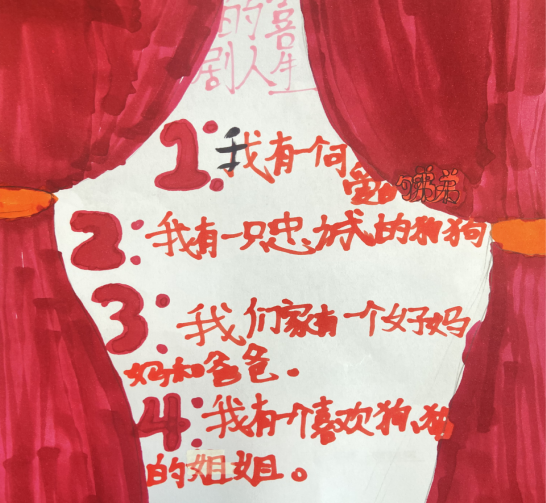 的喜
剧人生
1:我有一何
爱的弟弟
2:我有一只忠诚的狗狗
3:我们家有一个好妈
妈和爸爸。
4:我有个喜欢狗狗
的姐姐。